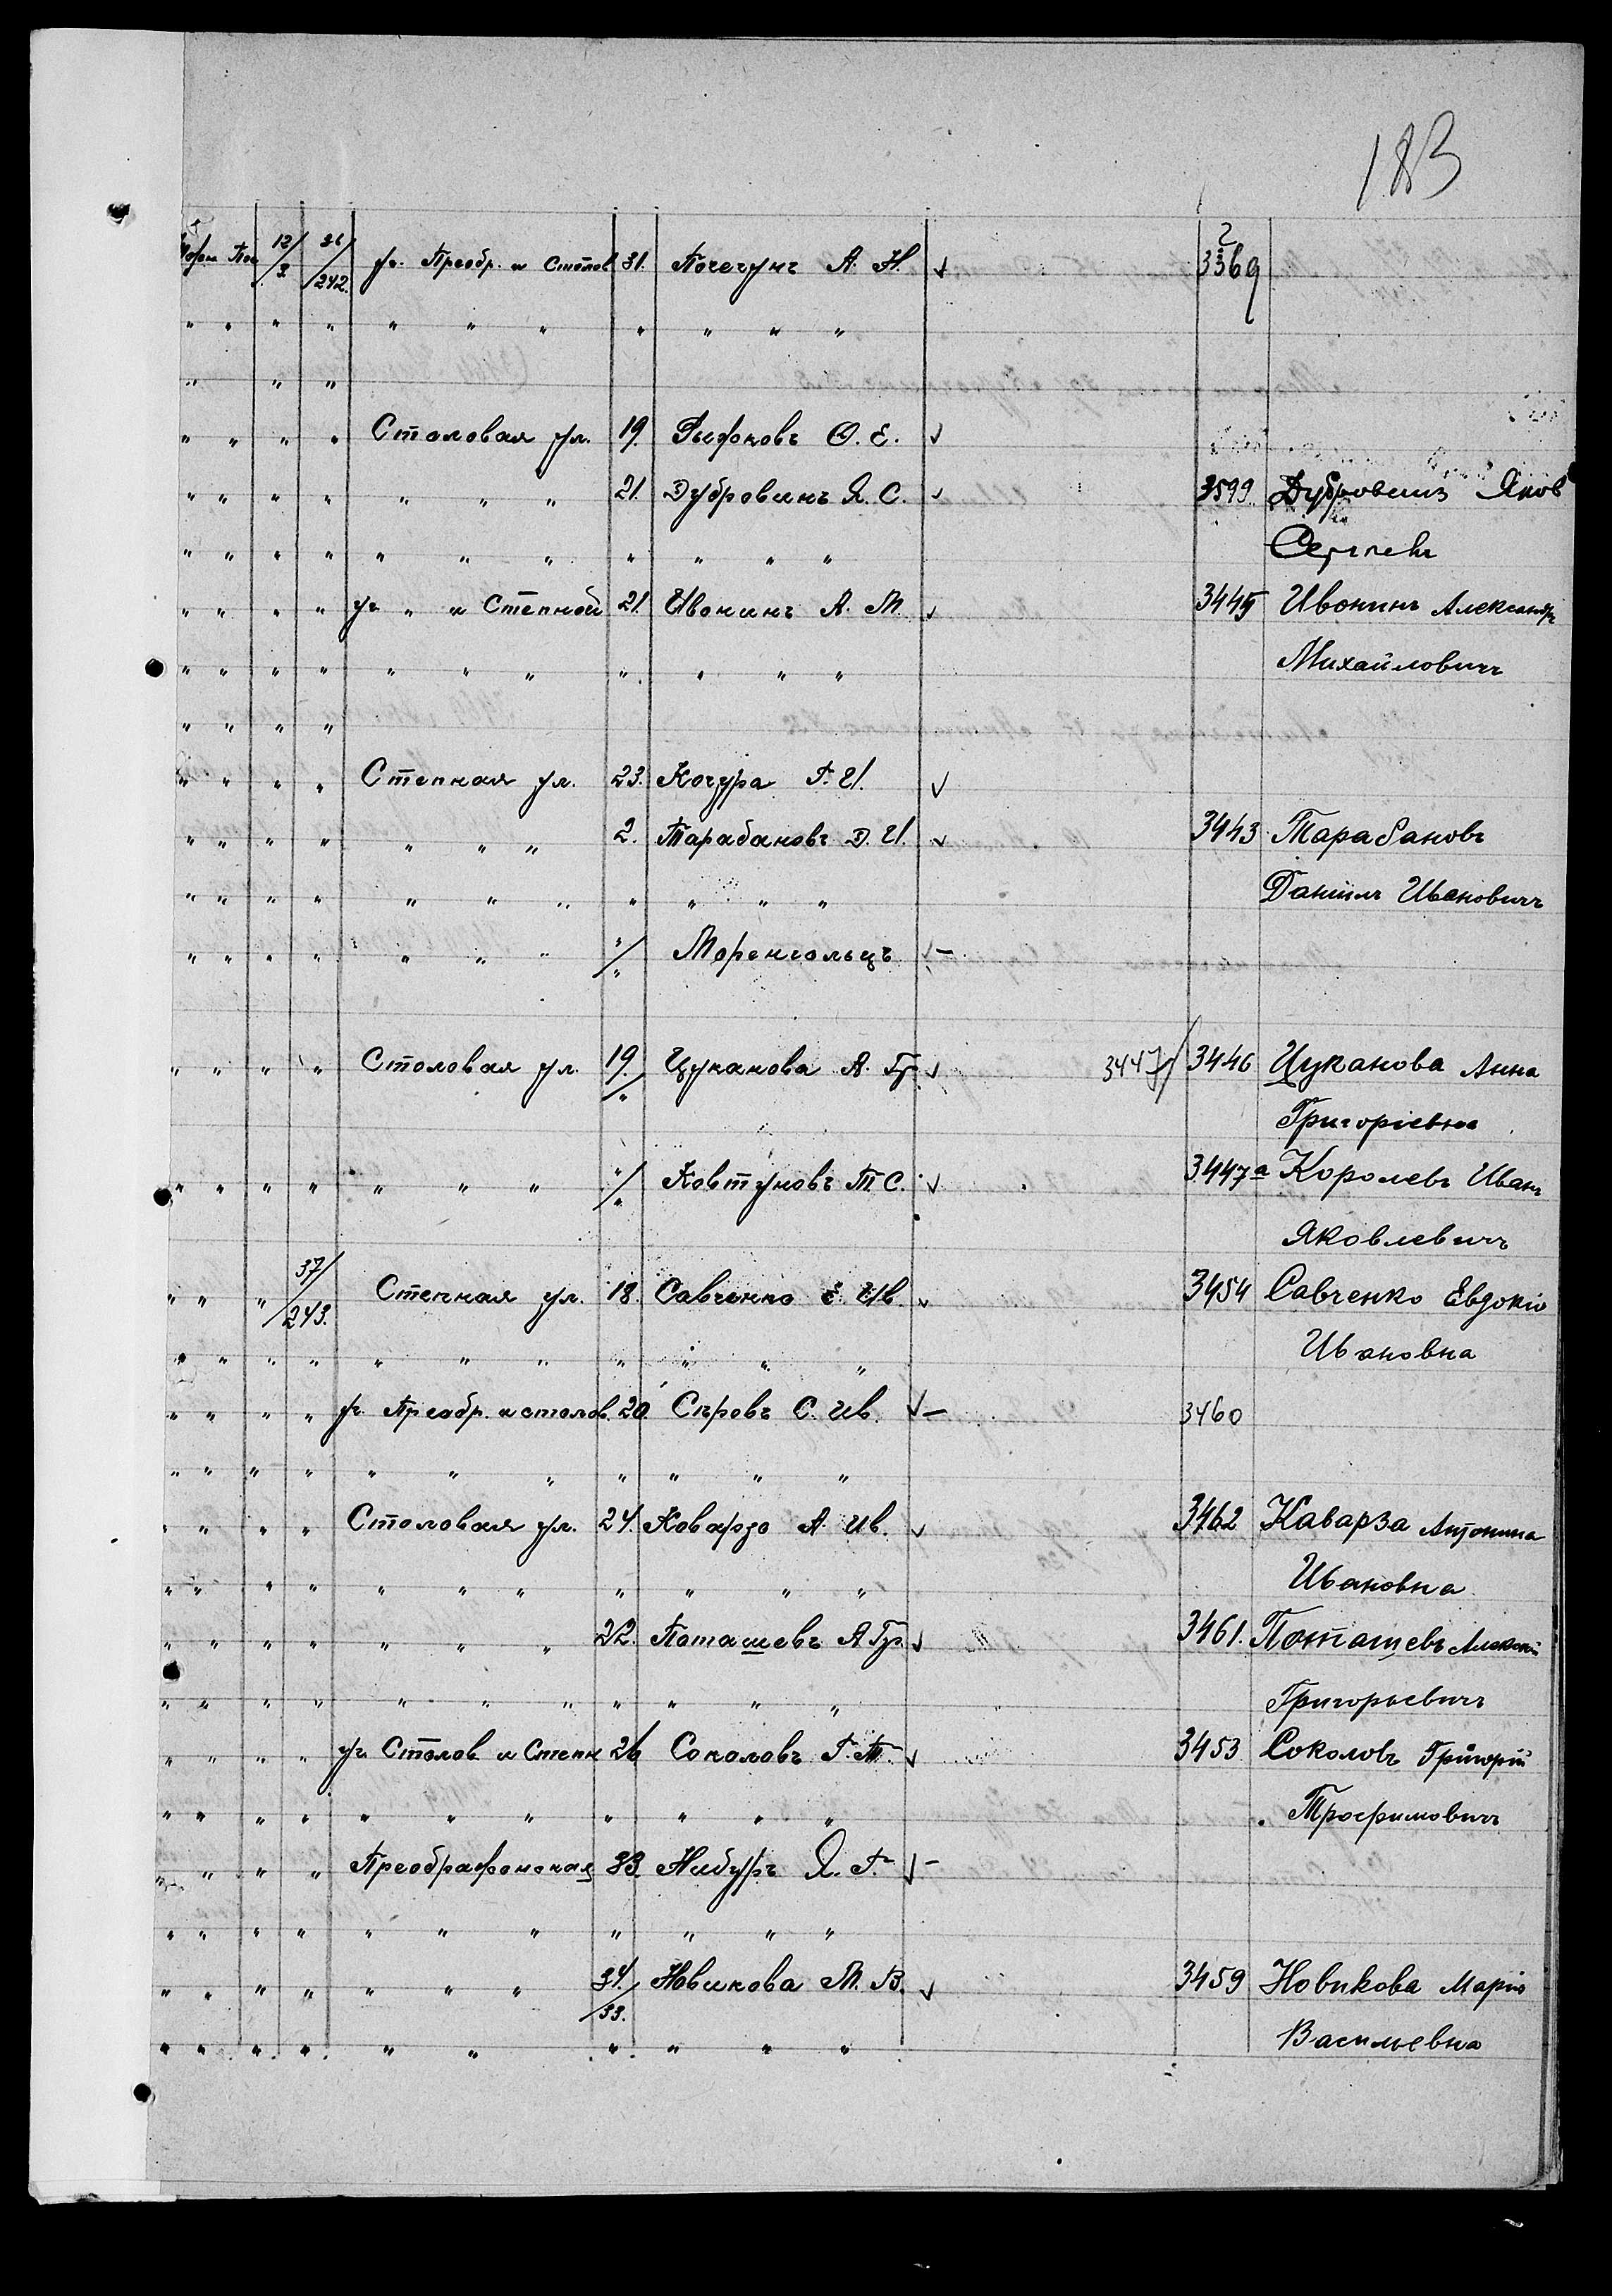 183
12/3 26/242. уг. Преобр. и Столов 31. Почегунъ А. Н. √ 3369 2
" " " " " " " " " " "
" " "
" " " " Столовая ул. 19. Рыжковъ Ѳ. Е. √
" " " " " " " 21. Дубровинъ Я. С. √ 3599. Дубровинъ Яков
" " " " " " " " " " " Сергѣевъ
" " " " уг. " и Степной 21. Ивонинъ А. М. √ 3445 Ивонинъ Александръ
" " " " " " " " " " " Михайловичъ
" " " "
" " " " Степная ул. 23. Кочура Г. И. √
" " " " " " " 2. Тарабановъ Д. И. √ 3443 Тарабановъ
" " " " " " " " " " " Даниилъ Ивановичъ
" " " " " " " "/" Моренгольцъ √ –
" " " " Столовая ул. 19./" Цуканова А. Гр. √ 3447/ 3446 Цуканова Анна
Григоріевна
" " " " " " " "/" Ковтуновъ Т. С. √ 3447а Королевъ Иванъ
Яковлевичъ
" " " 37/243. Степная ул. 18. Савченко Е. Ив. √ 3454 Савченко Евдокія
" " " " " " " " " " " Ивановна
" " " " уг. Преобр. и столов. 20 Сѣровъ С. Ив. √ – 3460
" " " " " " " " " " "
" " " " Столовая ул. 24. Ковардо А. Ив. √ 3462 Каварза Антонина
" " " " " " " " " " " Ивановна
" " " " " " " 22. Поташевъ А. Гр. √ 3461. Поташевъ Алексѣй
" " " " " " " " " " " Григорьевичъ
" " " " уг. Столов и Степн 26 Соколовъ Г. Т. √ 3453 Соколовъ Григорій
" " " " " " " " " " " Трофимовичъ
" " " " Преображенская 33. Нибуръ Я. Г. √ –
" " " " " " " " " " "
" " " " " " " 34./33. Новикова М. В. √ 3459 Новикова Марія
" " " " " " " " " " Васильевна